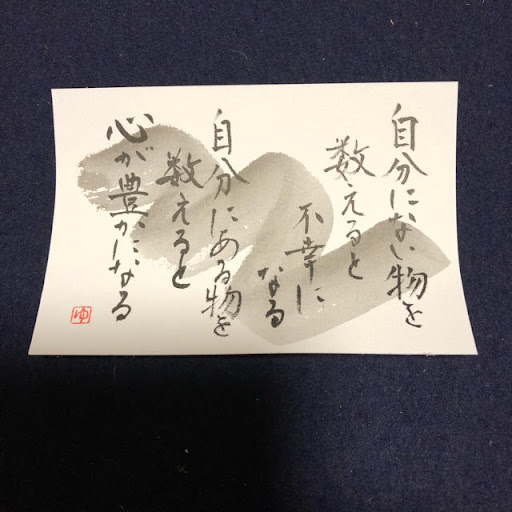 自分にない物を
数えると
不幸に
なる
自分にある物を
数えると
心が豊かになる
ゆ